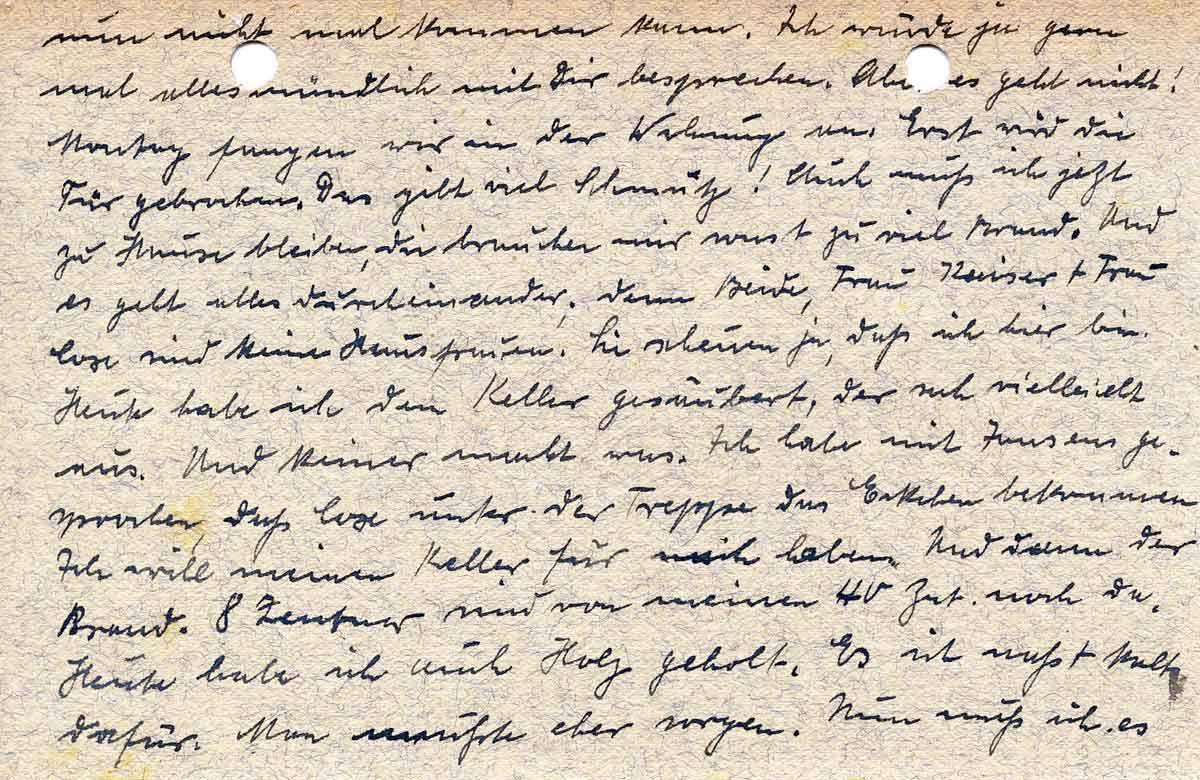 nun nicht mal kommen kann. Ich würde ja gern
mal alles mündlich mit Dir besprechen. Aber es geht nicht!
Montag fangen wir in der Wohnung an. Erst wird die
Tür gebrochen. Das gibt viel Schmutz! Auch muß ich jetzt
zu Hause bleiben, die brauchen mir sonst zu viel Brand. Und
es geht alles durcheinander, denn Beide, Frau Kaiser + Frau
Lose sind keine Hausfrauen. Sie scheuen ja, daß ich hier bin.
Heute habe ich den Keller gesäubert, der sah vielleicht
aus. Und keiner macht was. Ich habe mit Jansens ge-
sprochen, daß Lose unter der Treppe das Eckchen bekommen
Ich will meinen Keller für mich haben. Und dann der
Brand. 8 Zentner sind von meinen 40 Znt. noch da.
Heute habe ich auch Holz geholt. Es ist naß + kalt
dafür. Man mußte eher sorgen. Nun muß ich es